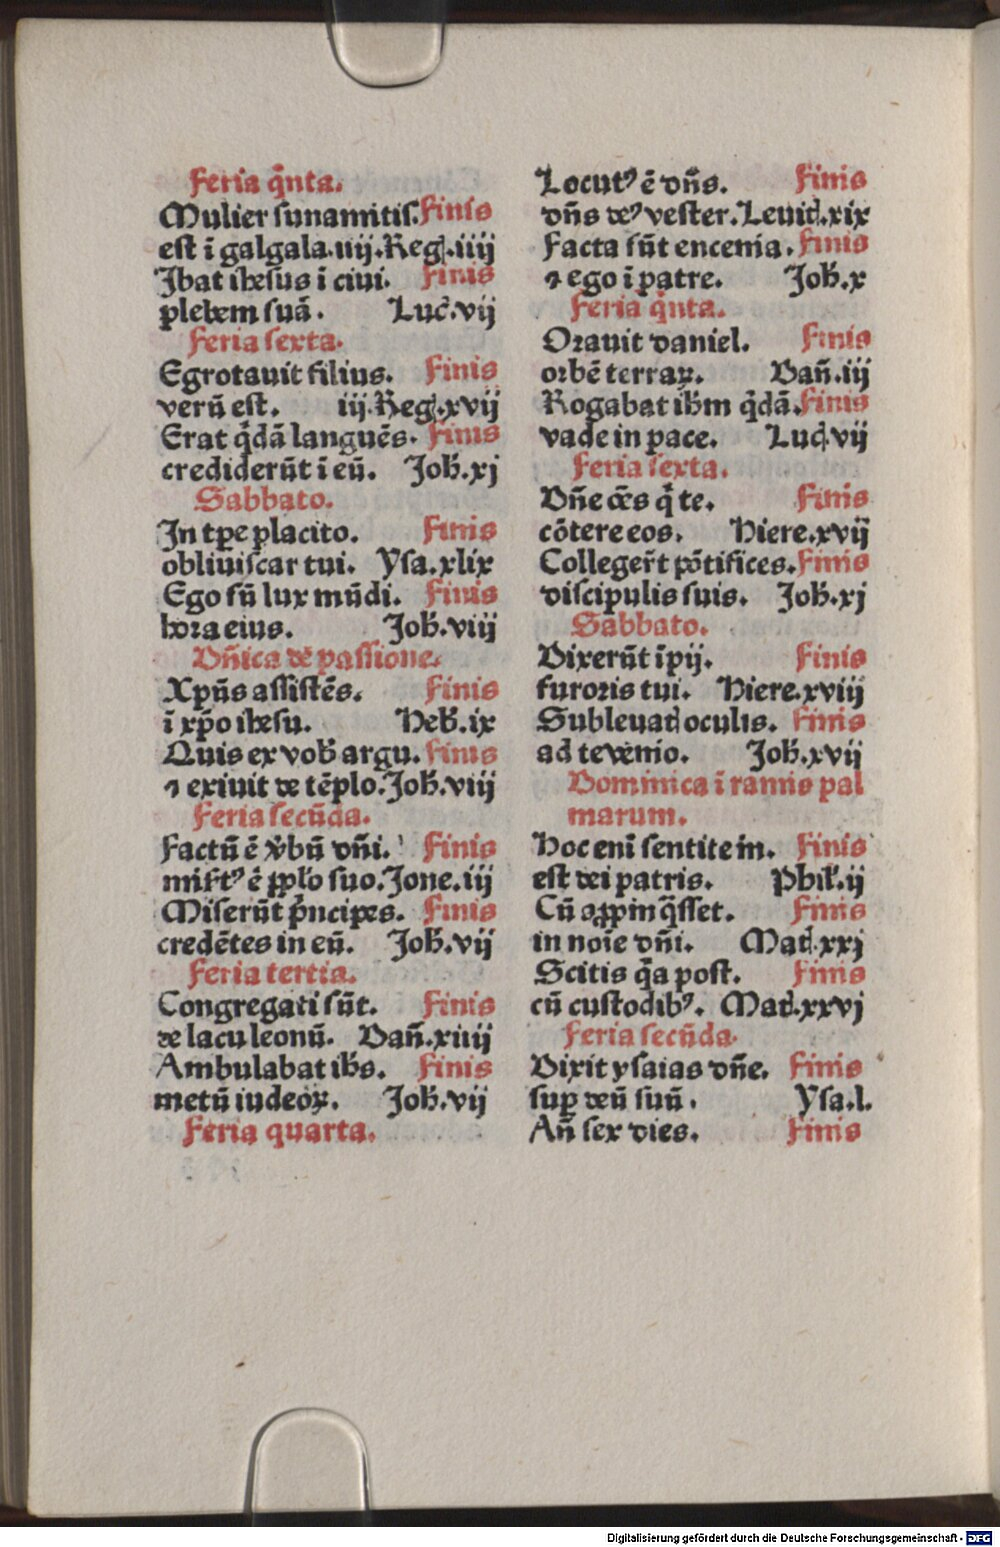 Feria q̄nta.
Mulier sunamitis. Finis
est ī galgala. iiij. Reg. iiij
Ibat ihesus ī ciui. Finis
plebem suā. Luc̄. vij
Feria sexta.
Egrotauit filius. Finis
verū est. iij. Reg. xvij
Erat q̄dā languēs. Finis
crediderūt ī eū. Joh̄. xj
Sabbato.
In tp̄e placito. Finis
obliuiscar tui. Ysa. xlix
Ego sū lux mūdi. Finis
hora eius. Joh̄. viij
Dn̄ica de passione.
Xpūs assistēs. Finis
ī xp̄o ihesu. Heb̄. ix
Quis ex vob̄ argu. Finis
⁊ exiuit de tēplo. Joh̄. viij
Feria secūda.
Factū ē v̄bū dn̄i. Finis
mis̄tꝰ ē pp̄lo suo. Jone. iij
Miserūt p̄ncipes. Finis
credētes in eū. Joh̄. vij
Feria tertia.
Congregati sūt. Finis
de lacu leonū. Dan̄. xiiij
Ambulabat ih̄s. Finis
metū iudeoꝝ. Joh̄. vij
Feria quarta.
Locutꝰ ē dn̄s. Finis
dn̄s deꝰ vester. Leuit. xix
Facta sūt encenia. Finis
⁊ ego ī patre. Joh̄. x
Feria q̄nta.
Orauit daniel. Finis
orbē terraꝝ. Dan̄. iij
Rogabat ih̄m q̄dā. Finis
vade in pace. Luc. vij
Feria sexta.
Dn̄e oēs q̄ te. Finis
cōtere eos. Hiere. xvij
Colleger̄t pōtifices. Finis
discipulis suis. Joh̄. xj
Sabbato.
Dixerūt īpij. Finis
furoris tui. Hiere. xviij
Subleuat oculis. Finis
ad te venio. Joh̄. xvij
Dominica ī ramis pal
marum.
Hoc enī sentite in. Finis
est dei patris. Phil̄. ij
Cū aꝓpinq̄sset. Finis
in noīe dn̄i. Mat. xxj
Scitis q̄a post. Finis
cū custodibꝰ. Mat. xxvj
Feria secūda.
Dixit ysaias dn̄e. Finis
suꝑ deū suū. Ysa. l.
An̄ sex dies. Finis
Digitalisierung gefördert durch die Deutsche Forschungsgemeinschaft - DFG